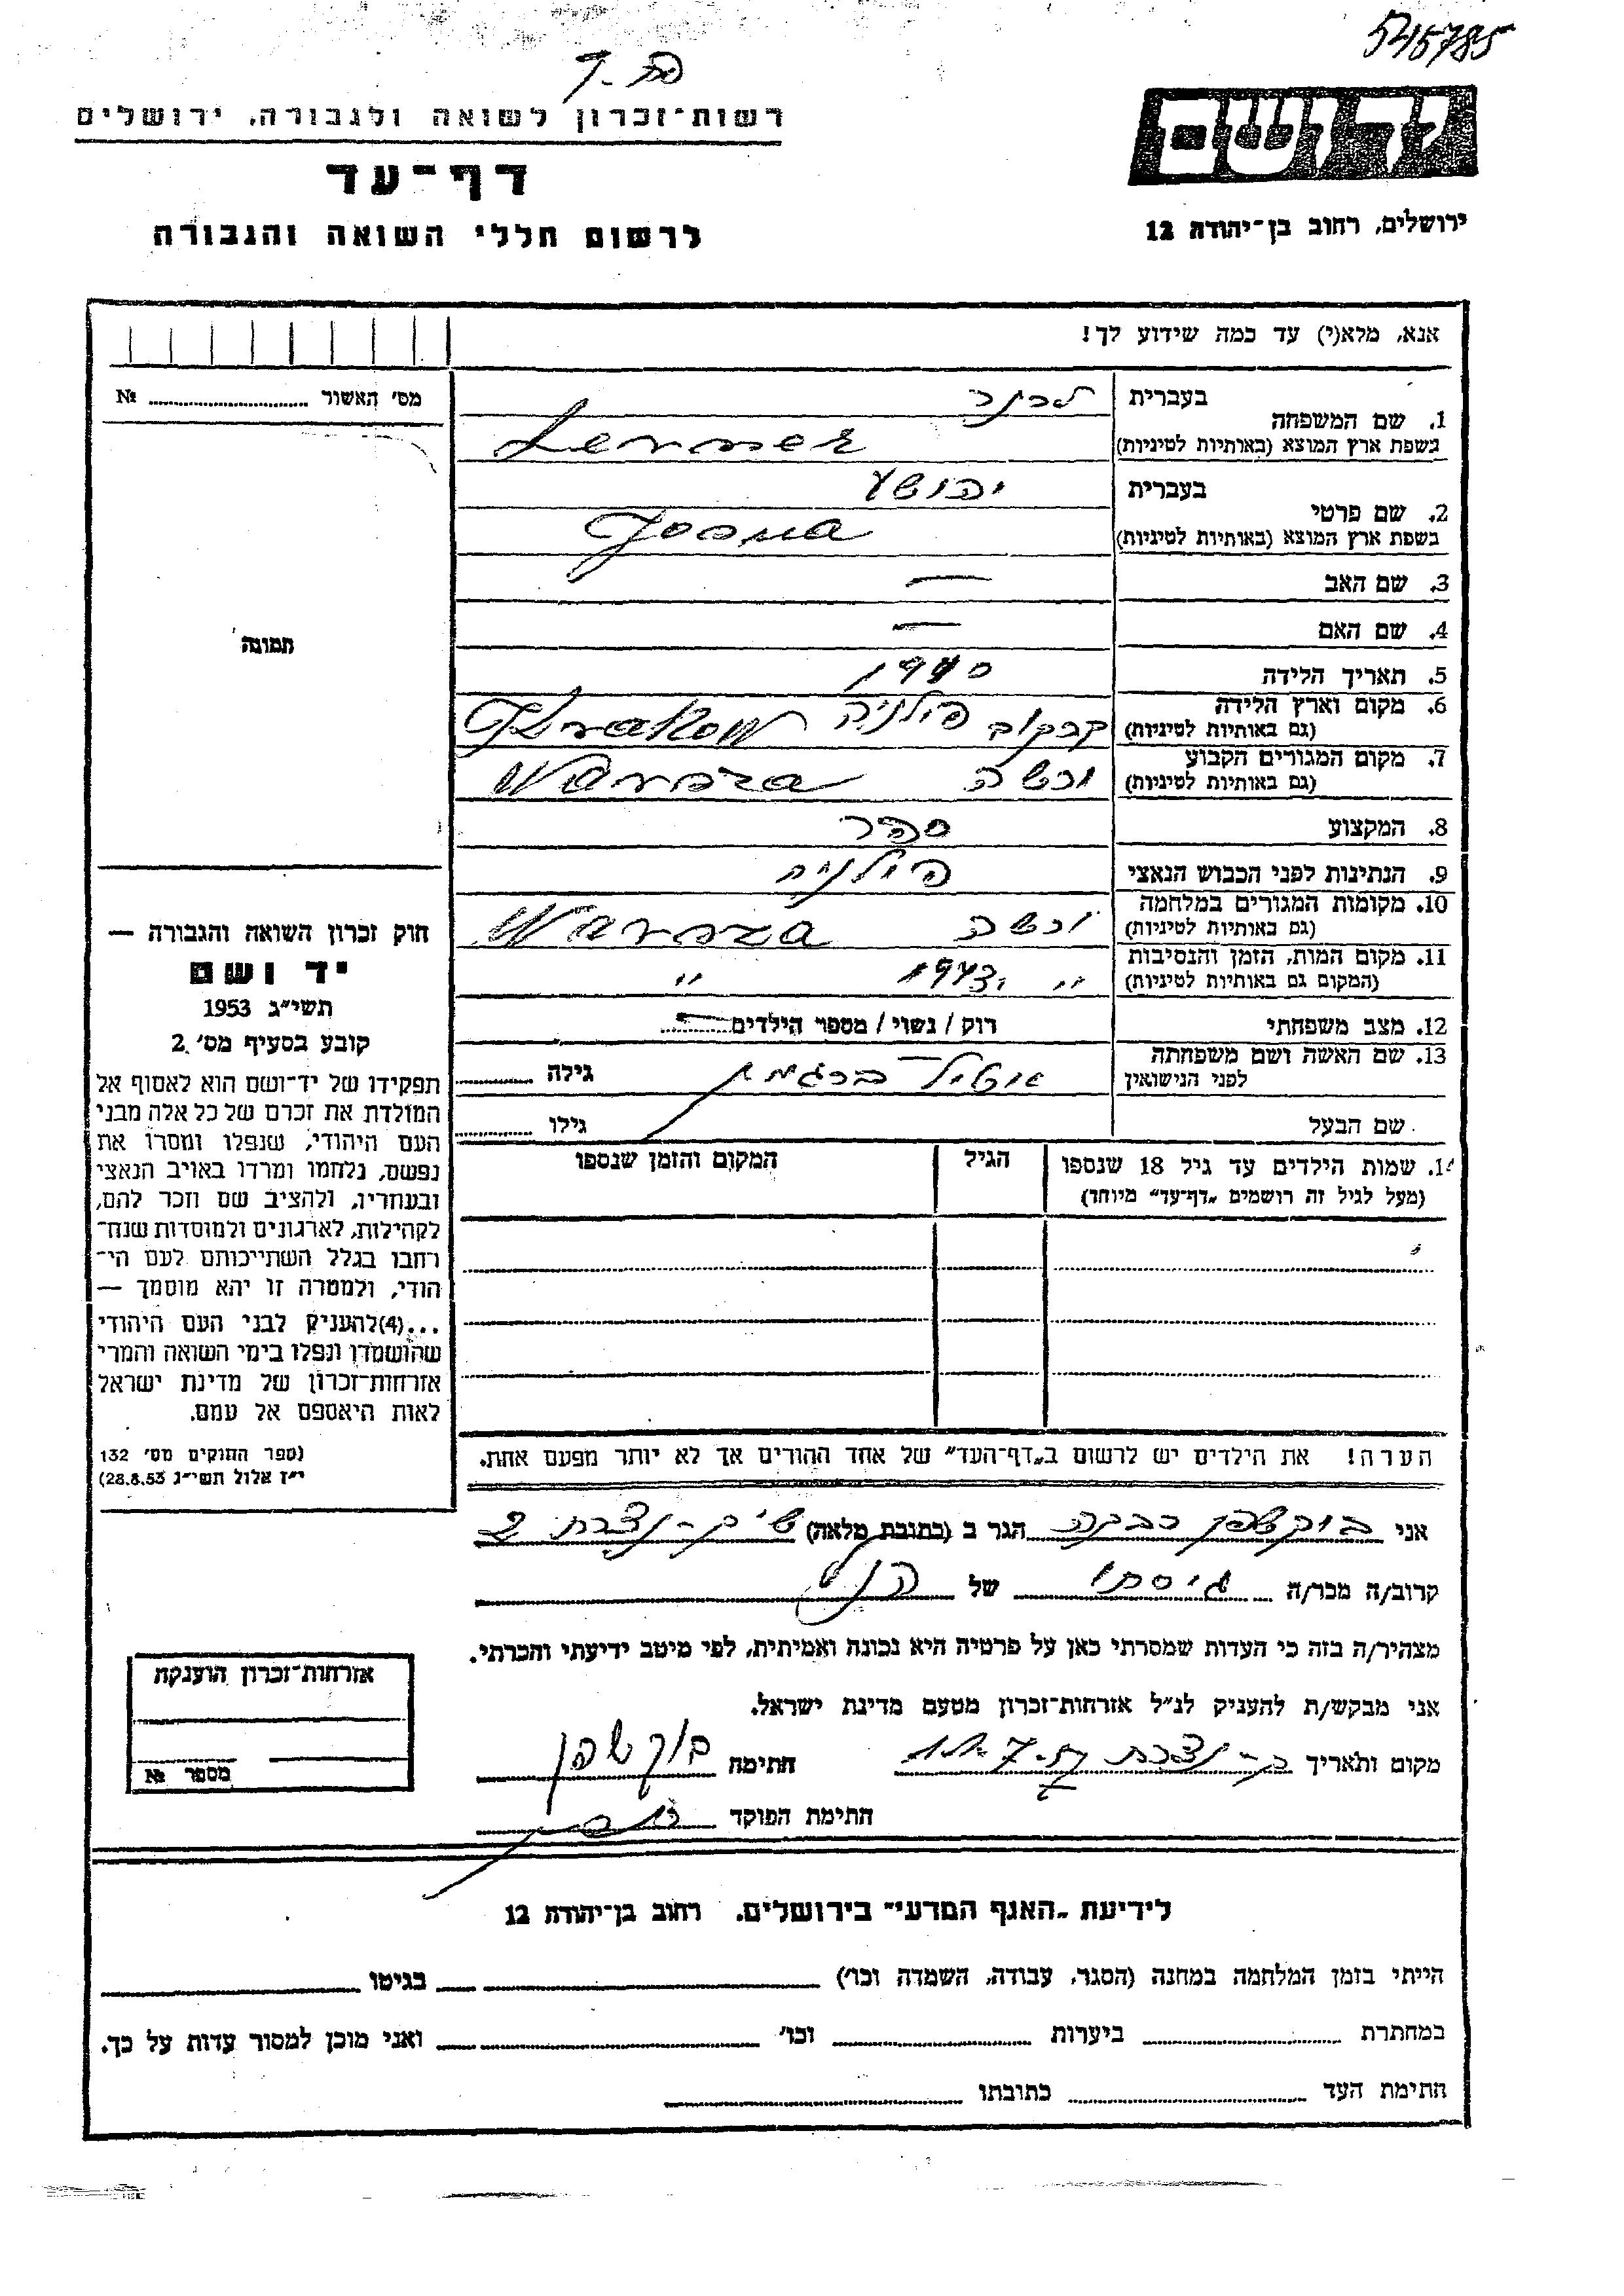 545785
רשות־זכרון לשואה ולגבורה, ירושלים
דף־עד
לרשום חללי השואה והגבורה
ידושם
ירושלים, רחוב בן־יהודה 12
אנא, מלא(י) עד כמה שידוע לך!
מס' האשור № 
תמונה
1. שם המשפחה בעברית לרנר
בשפת ארץ המוצא (באותיות לטיניות) Lerner
2. שם פרטי בעברית יהושע
בשפת ארץ המוצא (באותיות לטיניות) Josua
3. שם האב —
4. שם האם —
5. תאריך הלידה 1910
6. מקום וארץ הלידה (גם באותיות לטיניות) קרקוב פולניה Krakow
7. מקום המגורים הקבוע (גם באותיות לטיניות) ורשה Warsza
8. המקצוע ספר
9. הנתינות לפני הכבוש הנאצי פולניה
10. מקומות המגורים במלחמה (גם באותיות לטיניות) ורשה Warsza
11. מקום המות, הזמן והנסיבות (המקום גם באותיות לטיניות) " 1943 "
12. מצב משפחתי רוק / נשוי / מספר הילדים
13. שם האשה ושם משפחתה לפני הנישואין ברגמן גילה
שם הבעל גילו
14. שמות הילדים עד גיל 18 שנספו הגיל המקום והזמן שנספו
(מעל לגיל זה רושמים "דף־עד" מיוחד)
הערה! את הילדים יש לרשום ב"דף־העד" של אחד ההורים אך לא יותר מפעם אחת.
חוק זכרון השואה והגבורה —
יד ושם
תשי"ג 1953
קובע בסעיף מס' 2
תפקידו של יד־ושם הוא לאסוף אל
המולדת את זכרם של כל אלה מבני
העם היהודי, שנפלו ומסרו את
נפשם, נלחמו ומרדו באויב הנאצי
ובעוזריו, ולהציב שם וזכר להם,
לקהילות, לארגונים ולמוסדות שנח־
רחבו בגלל השתייכותם לעם הי־
הודי, ולמטרה זו יהא מוסמך —
...(4)להעניק לבני העם היהודי
שהושמדו ונפלו בימי השואה והמרי
אזרחות־זכרון של מדינת ישראל
לאות היאספם אל עמם.
(ספר החוקים מס' 132
י"ז אלול תשי"ג 28.8.53)
אני בוקשפן רבקה הגר ב (כתובת מלאה) נצרת
קרוב/ה מכר/ה גיסתו של הנ"ל
מצהיר/ה בזה כי העדות שמסרתי כאן על פרטיה היא נכונה ואמיתית, לפי מיטב ידיעתי והכרתי.
אני מבקש/ת להעניק לנ"ל אזרחות־זכרון מטעם מדינת ישראל.
מקום ותאריך נצרת חתימה בוקשפן
חתימת הפוקד
אזרחות־זכרון הוענקה
מספר №
לידיעת "האגף המדעי" בירושלים, רחוב בן־יהודה 12
הייתי בזמן המלחמה במחנה (הסגר, עבודה, השמדה וכו') בגיטו
במחתרת ביערות וכו' ואני מוכן למסור עדות על כך.
חתימת העד כתובתו